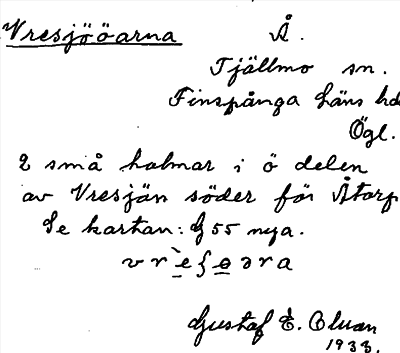 Vresjööarna Å.
Tjällmo sn.
Finspånga läns hd
Ögl.
2 små holmar i ö delen
av Vresjön söder för Åtorp
Se kartan: G 55 nya.
Gustaf E.
1933.